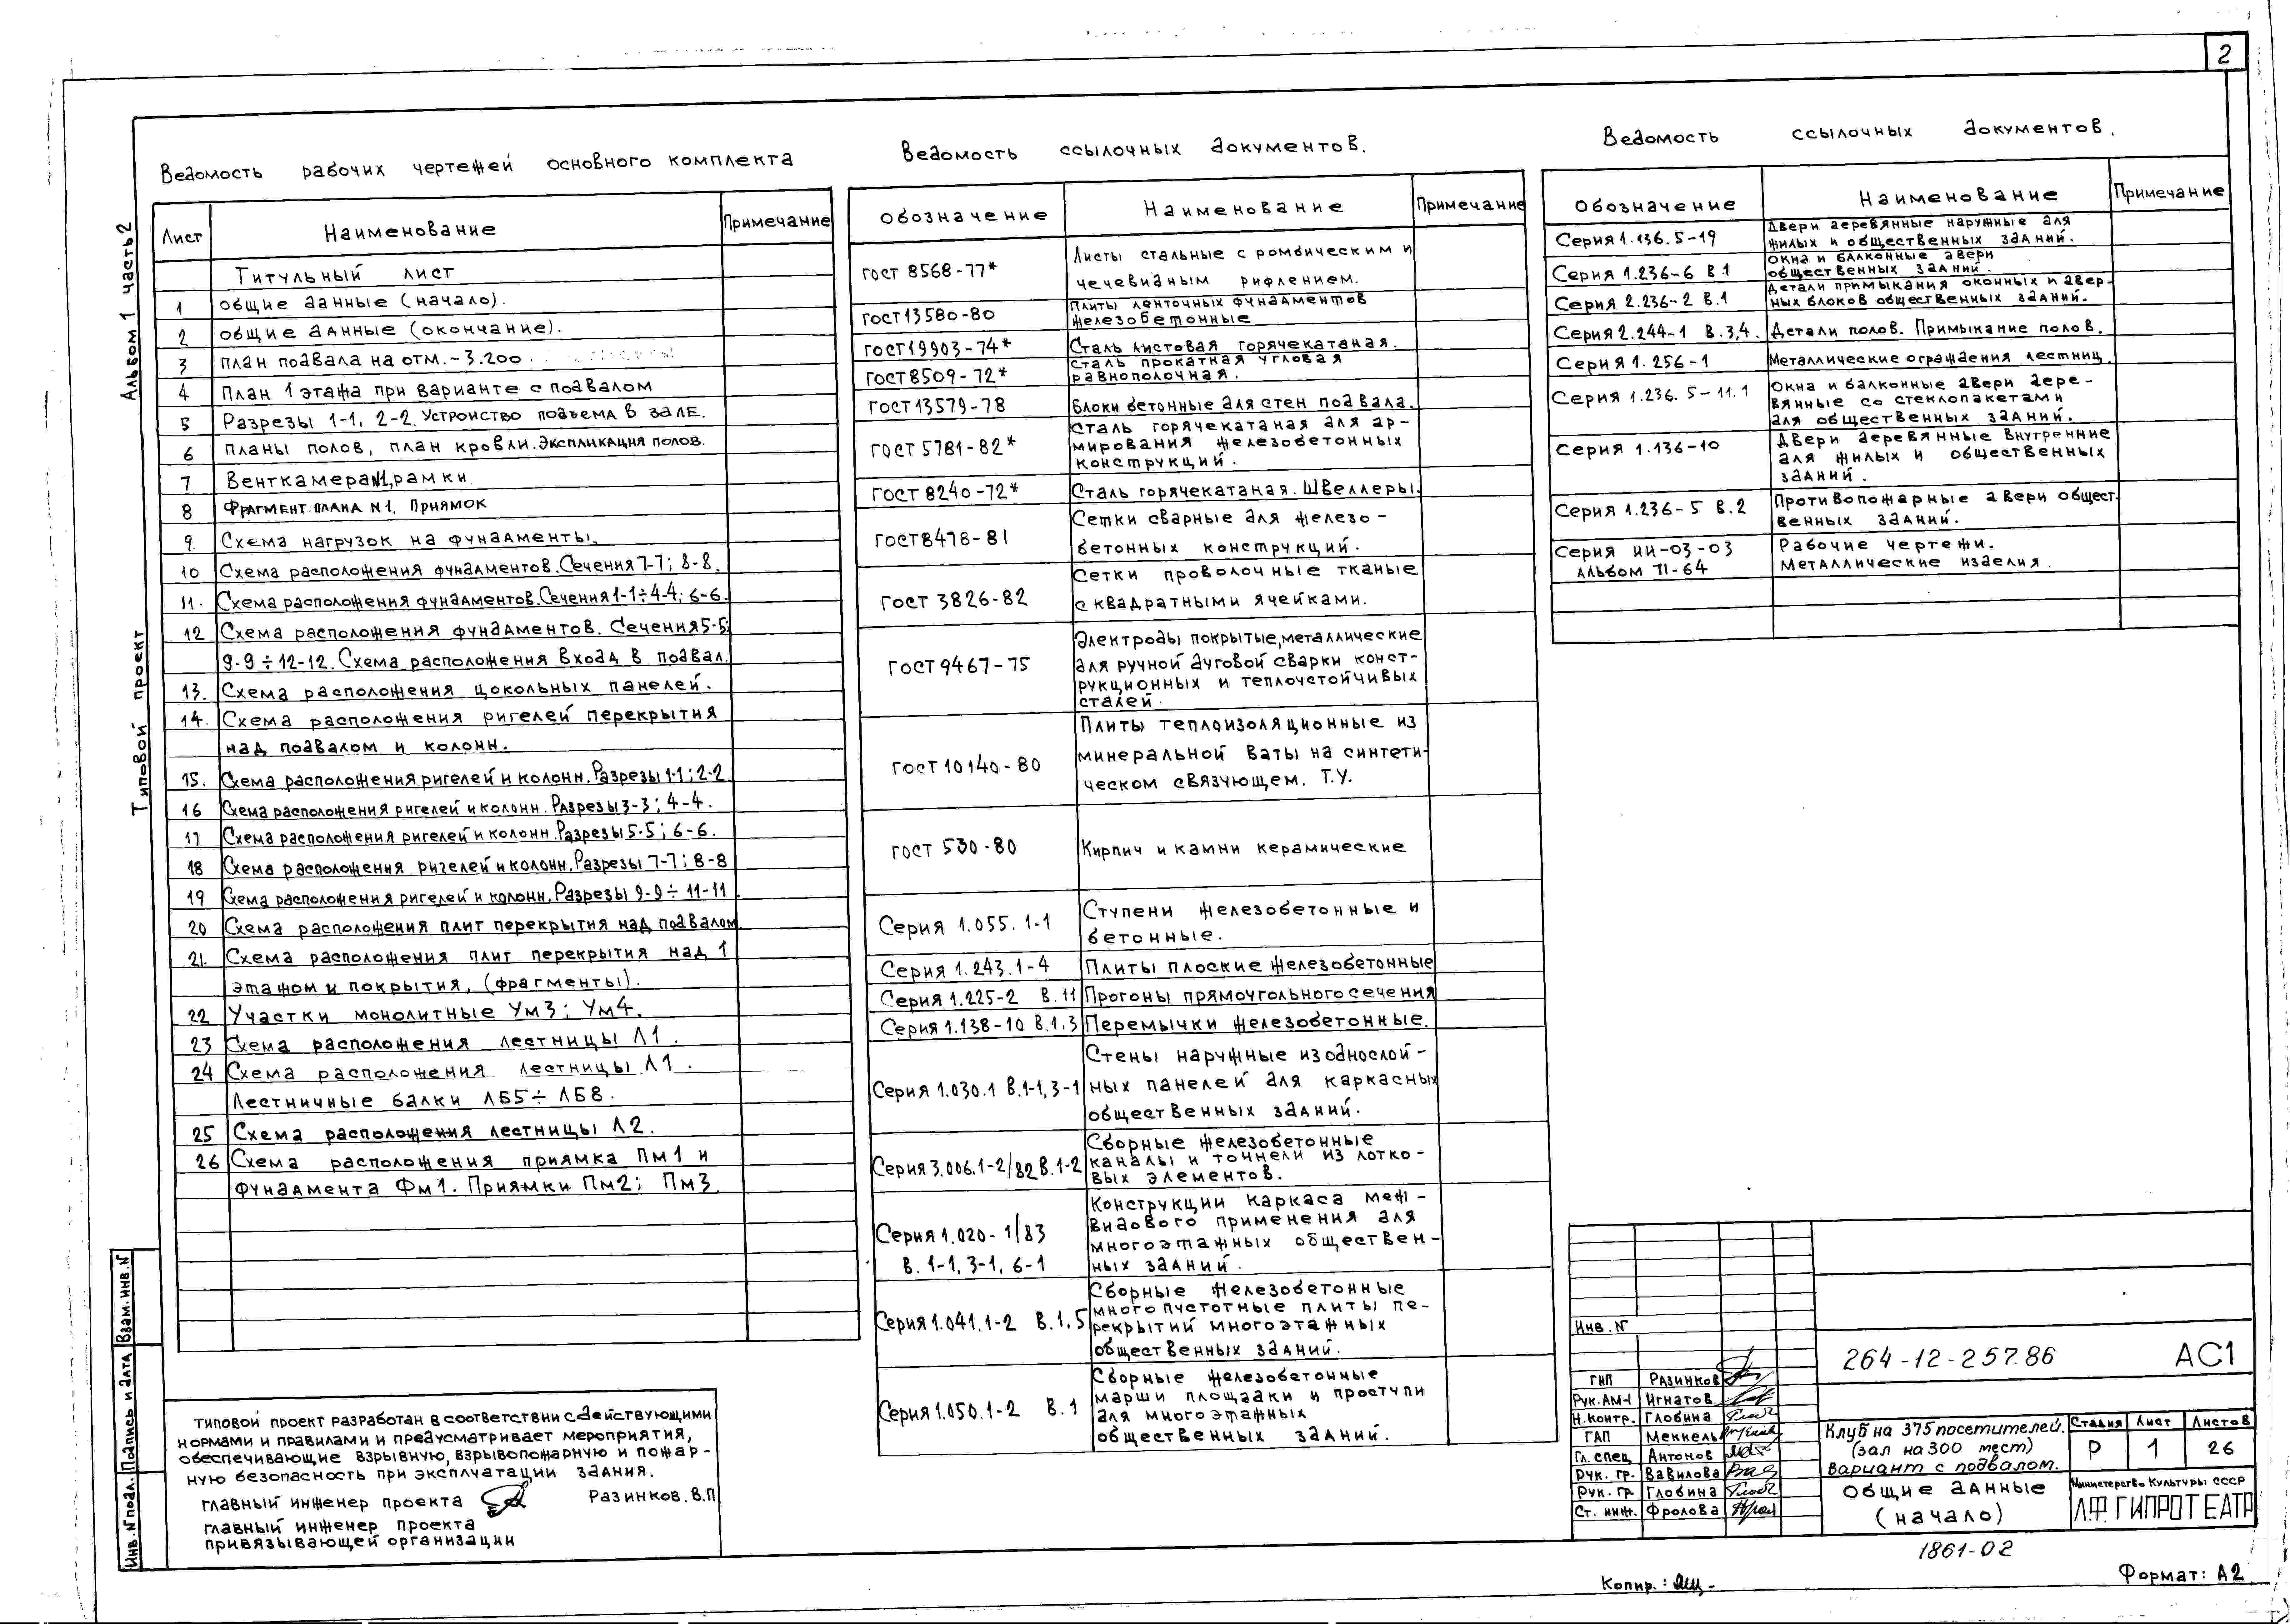 2
Альбом 1 часть 2
Типовой проект
Ведомость рабочих чертежей основного комплекта
Лист Наименование Примечание
Титульный лист
1 Общие данные (начало).
2 Общие данные (окончание).
3 План подвала на отм. -3.200
4 План 1 этажа при варианте с подвалом
5 Разрезы 1-1, 2-2. Устройство подъема в зале.
6 Планы полов, план кровли. Экспликация полов.
7 Венткамера N1, рамки.
8 Фрагмент плана N1. Приямок
9. Схема нагрузок на фундаменты.
10 Схема расположения фундаментов. Сечения 7-7; 8-8.
11. Схема расположения фундаментов. Сечения 1-1÷4-4; 6-6.
12 Схема расположения фундаментов. Сечения 5-5;
9-9÷12-12. Схема расположения вход в подвал.
13. Схема расположения цокольных панелей.
14. Схема расположения ригелей перекрытия
над подвалом и колонн.
15. Схема расположения ригелей и колонн. Разрезы 1-1; 2-2.
16 Схема расположения ригелей и колонн. Разрезы 3-3; 4-4.
17 Схема расположения ригелей и колонн. Разрезы 5-5; 6-6.
18 Схема расположения ригелей и колонн. Разрезы 7-7; 8-8
19 Схема расположения ригелей и колонн. Разрезы 9-9÷11-11
20 Схема расположения плит перекрытия над подвалом
21. Схема расположения плит перекрытия над 1
этажом и покрытия, (фрагменты).
22 Участки монолитные Ум3; Ум4.
23 Схема расположения лестницы Л1.
24 Схема расположения лестницы Л1.
Лестничные балки ЛБ5÷ЛБ8.
25 Схема расположения лестницы Л2.
26 Схема расположения приямка Пм1 и
фундамента Фм1. Приямки Пм2; Пм3.
Ведомость ссылочных документов.
Обозначение Наименование Примечание
ГОСТ 8568-77* Листы стальные с ромбическим и
чечевидным рифлением.
ГОСТ 13580-80 Плиты ленточных фундаментов
железобетонные
ГОСТ 19903-74* Сталь листовая горячекатаная.
ГОСТ 8509-72* Сталь прокатная угловая
равнополочная.
ГОСТ 13579-78 Блоки бетонные для стен подвала.
ГОСТ 5781-82* Сталь горячекатаная для ар-
мирования железобетонных
конструкций.
ГОСТ 8240-72* Сталь горячекатаная. Швеллеры.
ГОСТ 8478-81 Сетки сварные для железо-
бетонных конструкций.
ГОСТ 3826-82 Сетки проволочные тканые
с квадратными ячейками.
ГОСТ 9467-75 Электроды покрытые, металлические
для ручной дуговой сварки конст-
рукционных и теплоустойчивых
сталей.
ГОСТ 10140-80 Плиты теплоизоляционные из
минеральной ваты на синтети-
ческом связующем. Т.У.
ГОСТ 530-80 Кирпич и камни керамические
Серия 1.055.1-1 Ступени железобетонные и
бетонные.
Серия 1.243.1-4 Плиты плоские железобетонные
Серия 1.225-2 В.11 Прогоны прямоугольного сечения
Серия 1.138-10 В.1,3 Перемычки железобетонные.
Серия 1.030.1 В.1-1, 3-1 Стены наружные из однослой-
ных панелей для каркасных
общественных зданий.
Серия 3.006.1-2/82 В.1-2 Сборные железобетонные
каналы и тоннели из лотко-
вых элементов.
Серия 1.020-1/83
В. 1-1, 3-1, 6-1
Конструкции каркаса меж-
видового применения для
многоэтажных обществен-
ных зданий.
Серия 1.041.1-2 В.1,5 Сборные железобетонные
многопустотные плиты пе-
рекрытий многоэтажных
общественных зданий.
Серия 1.050.1-2 В.1 Сборные железобетонные
марши площадки и проступи
для многоэтажных
общественных зданий.
Ведомость ссылочных документов.
Обозначение Наименование Примечание
Серия 1.136.5-19 Двери деревянные наружные для
жилых и общественных зданий.
Серия 1.236-6 В.1 Окна и балконные двери
общественных зданий.
Серия 2.236-2 В.1 Детали примыкания оконных и двер-
ных блоков общественных зданий.
Серия 2.244-1 В.3,4. Детали полов. Примыкание полов.
Серия 1.256-1 Металлические ограждения лестниц.
Серия 1.236.5-11.1 Окна и балконные двери дере-
вянные со стеклопакетами
для общественных зданий.
Серия 1.136-10 Двери деревянные внутренние
для жилых и общественных
зданий.
Серия 1.236-5 В.2 Противопожарные двери общест
венных зданий.
Серия ИИ-03-03
Альбом П-64
Рабочие чертежи.
Металлические изделия.
Типовой проект разработан в соответствии с действующими
нормами и правилами и предусматривает мероприятия,
обеспечивающие взрывную, взрывопожарную и пожар-
ную безопасность при эксплуатации здания.
главный инженер проекта Разинков.В.П
главный инженер проекта
привязывающей организации
Инв.N подл. Подпись и дата Взам.инв.N
Инв.N
ГИП Разинков
Рук.АМ-1 Игнатов
Н.контр. Глобина
ГАП Меккель
Гл.спец Антонов
Рук. гр. Вавилова
Рук. гр. Глобина
Ст. инж. Фролова
264-12-257.86 АС1
Клуб на 375 посетителей.
(зал на 300 мест)
вариант с подвалом.
Стадия Лист Листов
Р 1 26
Общие данные
(начало)
Министерство Культуры СССР
Л.Ф. ГИПРОТЕАТР
1861-02
Копир.:
Формат: А2